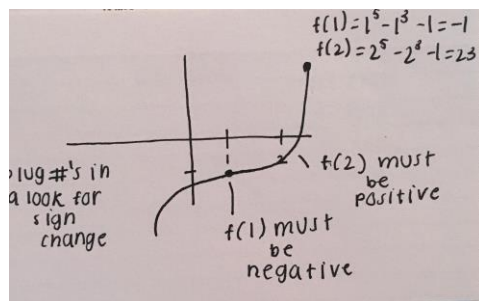 f(1)=1⁵-1³-1=-1
f(2)=2⁵-2³-1=23
plug #'s in
a look for
sign
change
2
f(2) must
be
positive
f(1) must
be
negative